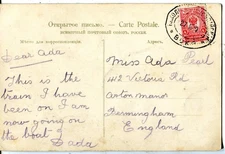 Открытое письмо. Carte Postale.
Всемірный почтовый союзъ. Россія.
Dear Ada
This is the
train I have
been on I am
now going on
the boat
Dada
Miss Ada Pearl
412 Victoria Rd
Aston manor
Birmingham
England